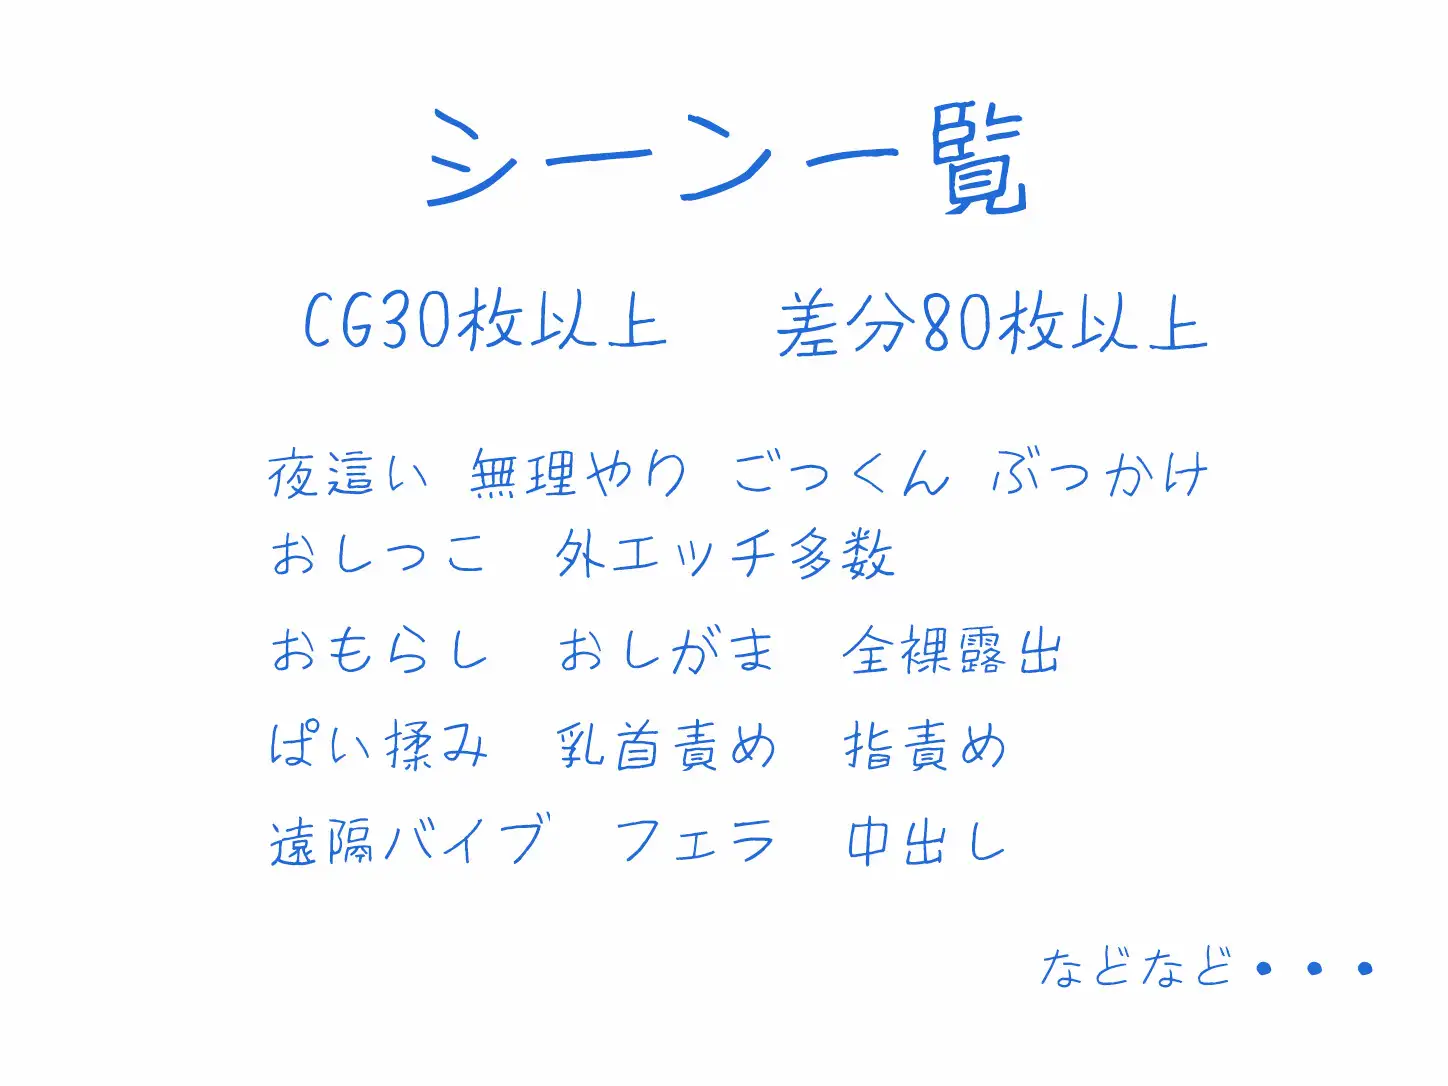 シーン一覧
CG30枚以上　差分80枚以上
夜這い 無理やり ごっくん ぶっかけ
おしっこ　外エッチ多数
おもらし　おしがま　全裸露出
ぱい揉み　乳首責め　指責め
遠隔バイブ　フェラ　中出し
などなど・・・